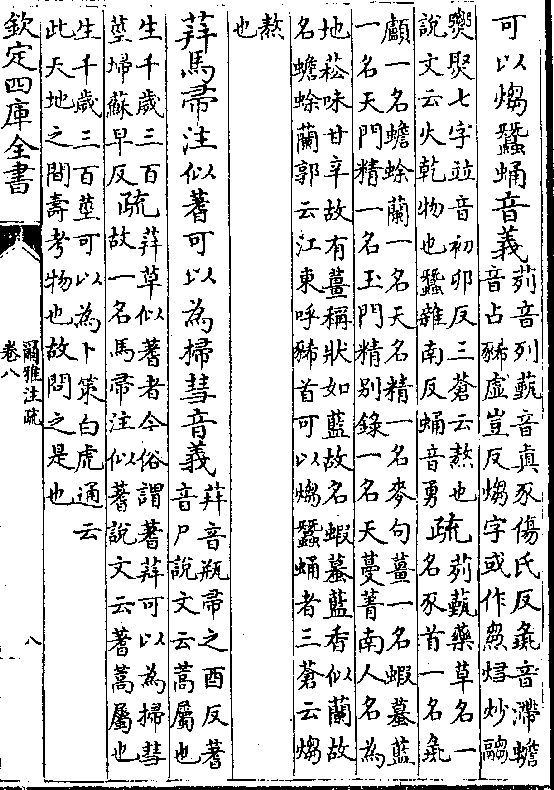 可以㷅蠶蛹音義茢音列薽音真豕傷氏反彘音滯蟾
音占豨虛豈反㷅字或作𤋱焣炒䰞
㷶聚七字竝音初卯反三蒼云熬也
說文云火乾物也蠶雜南反蛹音勇疏茢薽藥草名一
名豕首一名彘
顱一名蟾蜍蘭一名天名精一名麥句薑一名蝦蟇藍
一名天門精一名玉門精别錄一名天蔓菁南人名為
地菘味甘辛故有薑稱狀如藍故名蝦蟇藍香似蘭故
名蟾蜍蘭郭云江東呼豨首可以㷅蠶蛹者三蒼云㷅
熬
也
荓馬帚注似蓍可以為掃彗音義荓音瓶帚之酉反蓍
音尸說文云蒿屬也
生千歲三百
莖埽蘇早反疏荓草似蓍者今俗謂蓍荓可以為掃彗
故一名馬帚注似蓍說文云蓍蒿屬也
生千歲三百莖可以為卜策白虎通云
此天地之間壽考物也故問之是也
欽定四庫全書
爾雅注疏
卷八
八